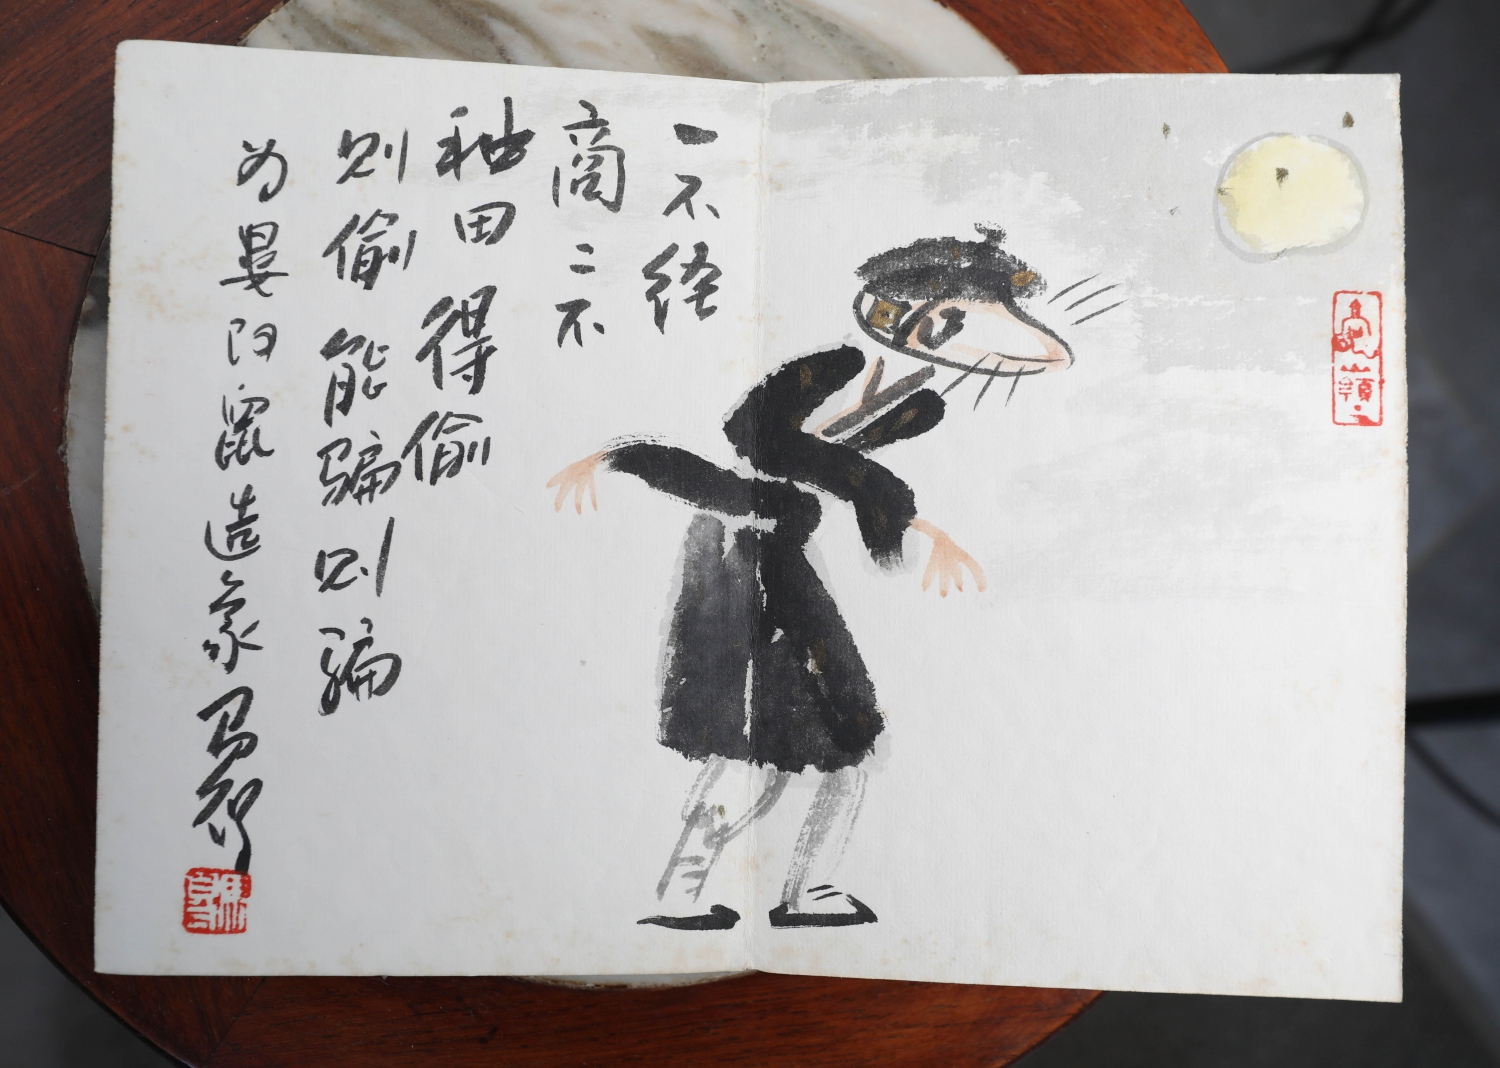 一不经
商二不
种田得偷
则偷能骗则骗
为鼠造象马得